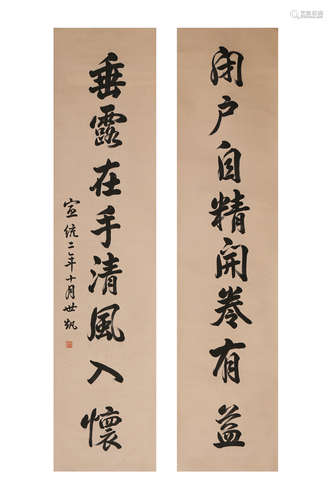 闭户自精开卷有益
垂露在手清风入怀
宣统二年十月世凯